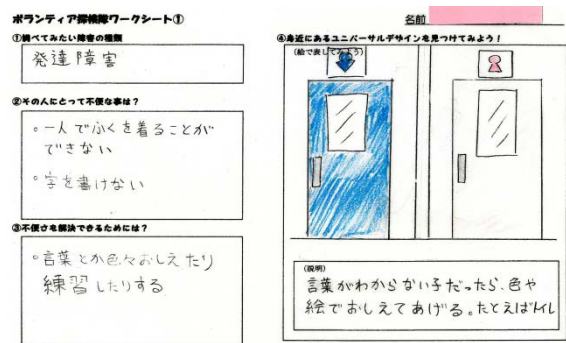 ボランティア探検隊ワークシート①
名前
①調べてみたい障害の種類
発達障害
②その人にとって不便な事は？
・一人でふくを着ることが
できない
・字を書けない
③不便さを解決できるためには？
・言葉とか色々おしえたり
練習したりする
④身近にあるユニバーサルデザインを見つけてみよう！
(絵で表してみよう)
(説明)
言葉がわからない子だったら、色や
絵でおしえてあげる。たとえばトイレ